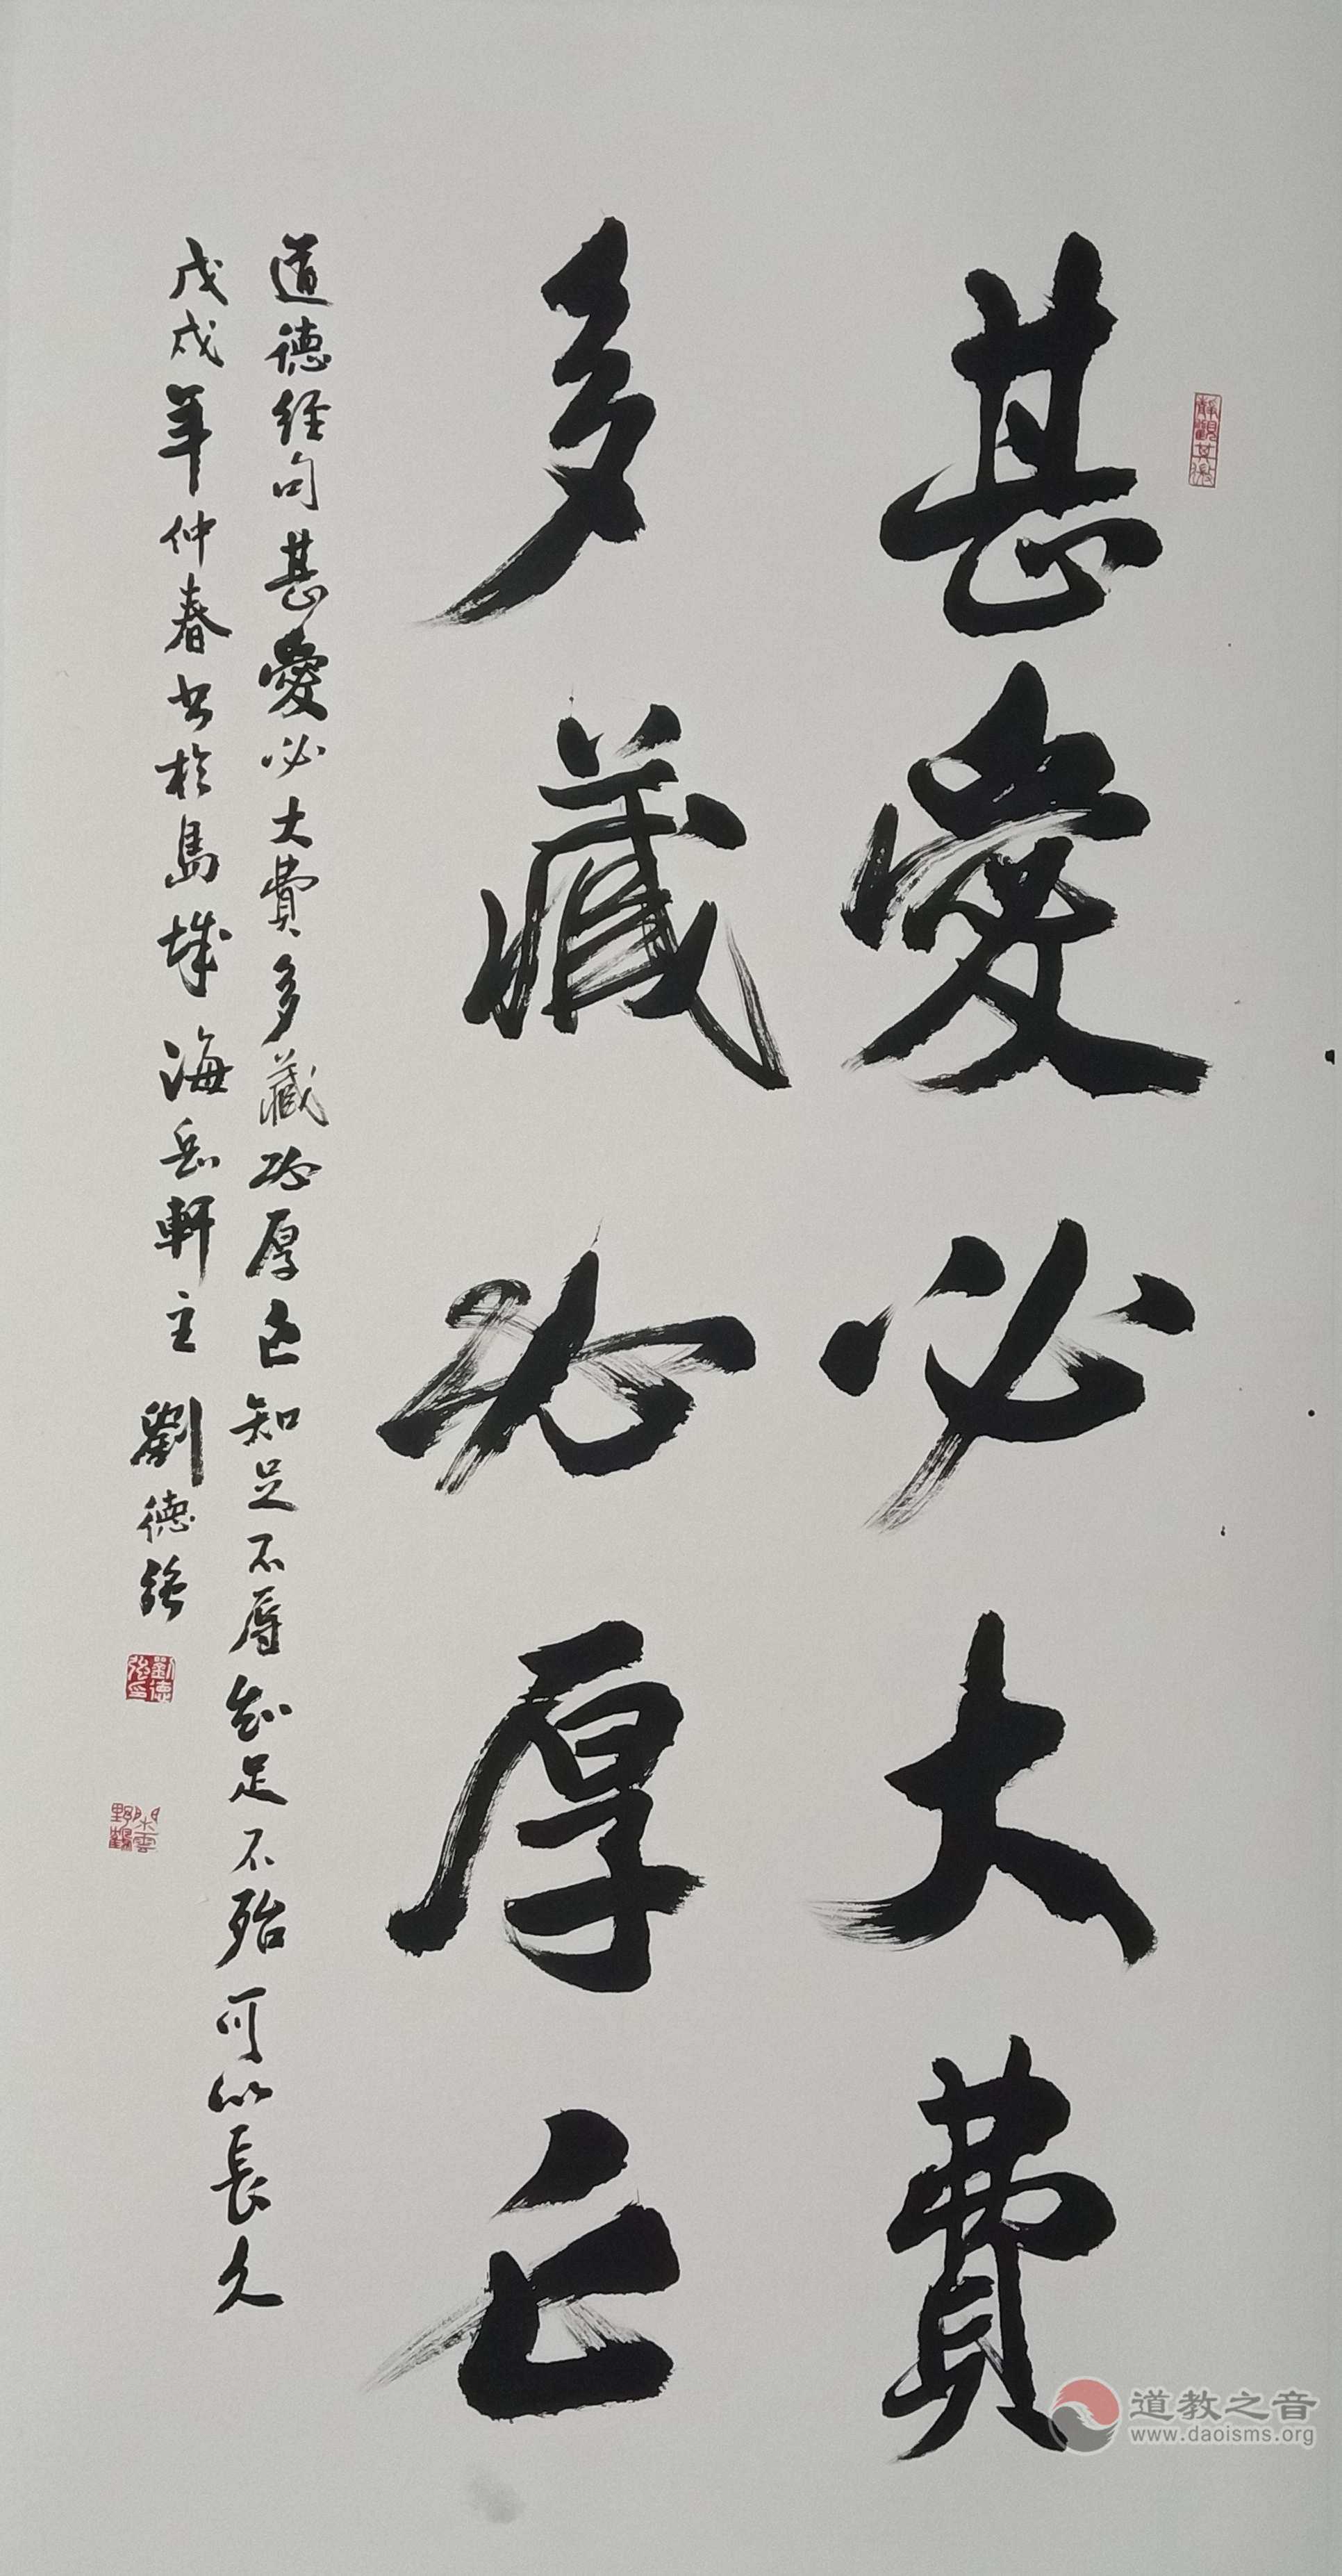 靜觀其
甚愛必大費
多藏必厚亡
道德经句甚愛必大費多藏必厚亡知足不辱知足不殆可以長久
戊戌年仲春书於島城海岳軒主劉德
劉德印
閑雲野鶴
道教之音
www.daoisms.org